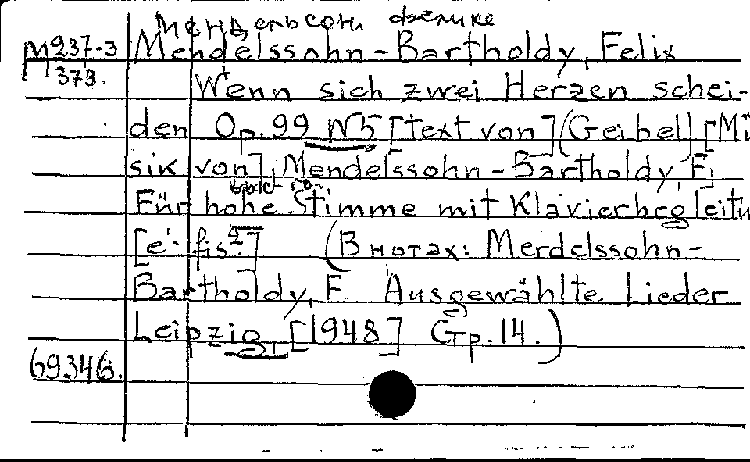 Мендельсон Феликс
М237-3 Mendelssohn-Bartholdy, Felix
373. Wenn sich zwei Herzen schei-
den Op. 99 N5 [Text von] (Geibel) [Mu
sik von] Mendelssohn-Bartholdy, F.
Für hohe Stimme mit Klavierbegleitu
[e'-fis²] (В нотах: Merdelssohn-
Bartholdy, F. Ausgewählte Lieder
Leipzig, [1948] Стр. 14.)
69346.